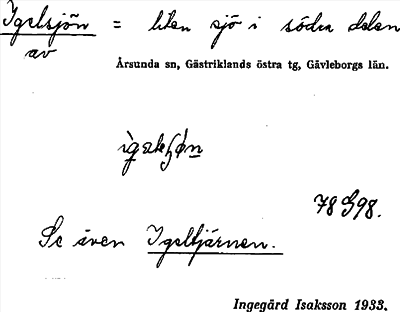 Igelsjön = liten sjö i södra delen
av
Årsunda sn, Gästriklands östra tg, Gävleborgs län.
78 G98.
Se även Igeltjärnen.
Ingegärd Isaksson 1933.